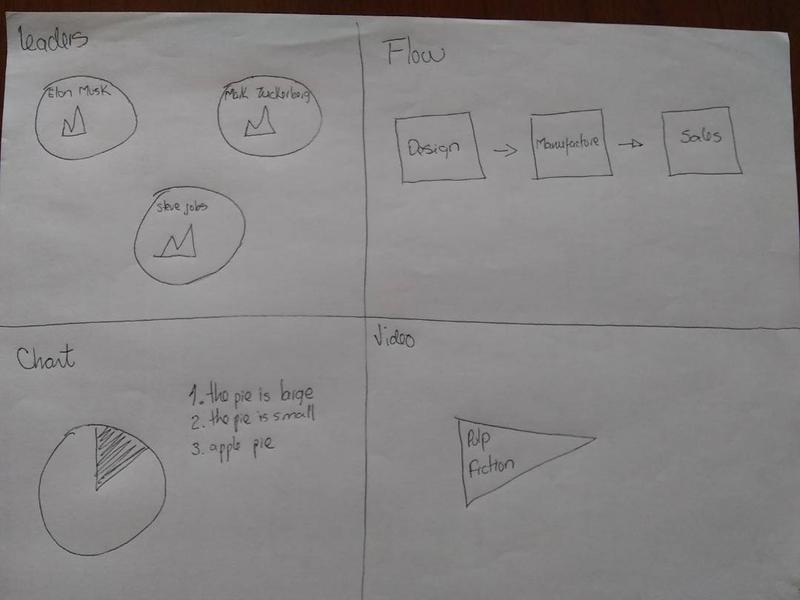 Leaders
Elon Musk
Mark Zuckerberg
Steve jobs
Flow
Design
Manufacture
Sales
Chart
1. the pie is large
2. the pie is small
3. apple pie
Video
Pulp
Fiction